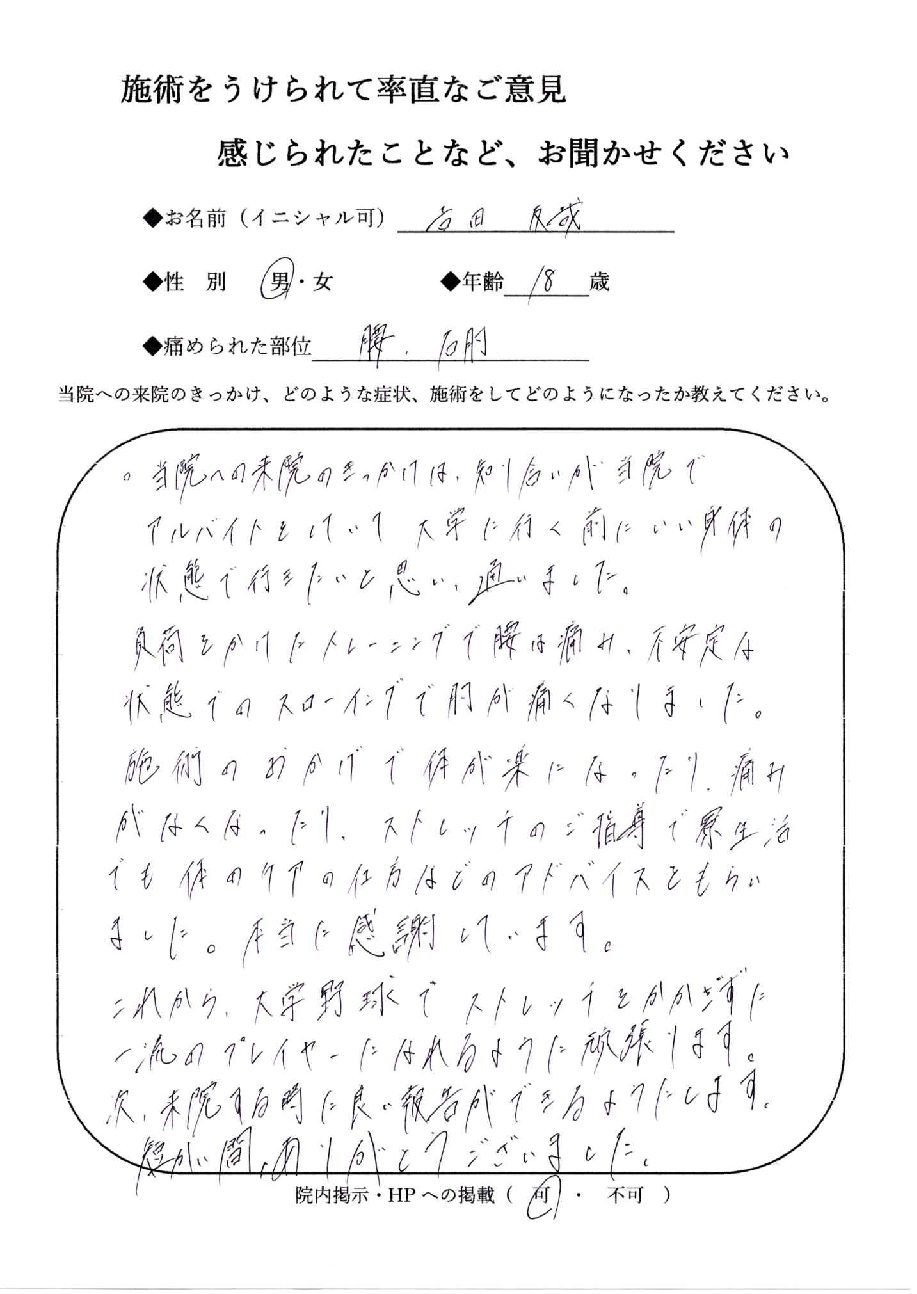 施術をうけられて率直なご意見
感じられたことなど、お聞かせください
◆お名前（イニシャル可） 吉田
◆性 別 男・女 ◆年齢 18 歳
◆痛められた部位 腰、右肘
当院への来院のきっかけ、どのような症状、施術をしてどのようになったか教えてください。
。当院への来院のきっかけは、知り合いが当院で
アルバイトをしていて大学に行く前にいい身体の
状態で行きたいと思い、通いました。
負荷をかけたトレーニングで腰は痛み、不安定な
状態でのスローイングで肘が痛くなりました。
施術のおかげで体が楽になったり、痛み
がなくなったり、ストレッチのご指導で寮生活
でも体のケアの仕方などのアドバイスをもらい
ました。本当に感謝しています。
これから、大学野球でストレッチをかかさずに
一流のプレイヤーになれるように頑張ります。
次、来院する時に良い報告ができるようにします。
間、ありがとうございました。
院内掲示・HPへの掲載（ 可 ・ 不可 ）